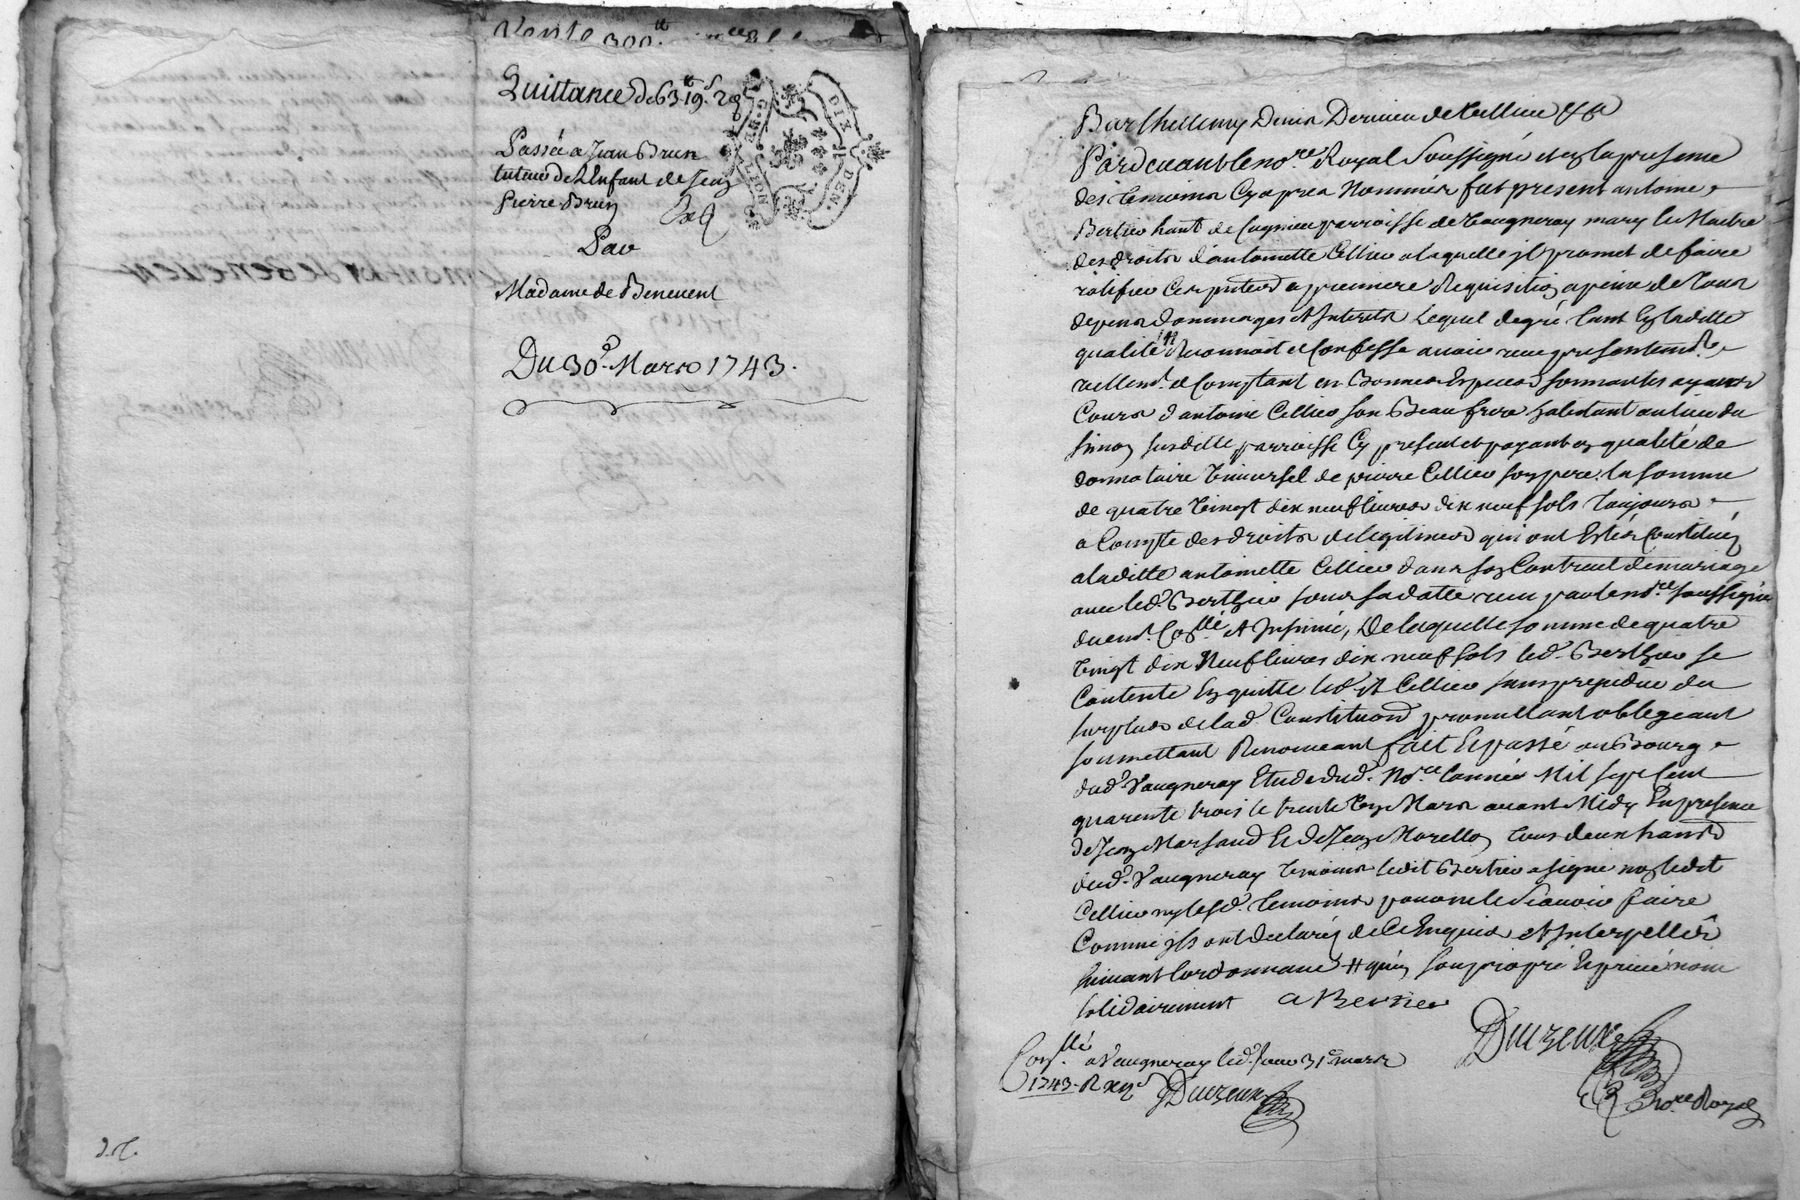 Vente 300ᵗᵗ
Quittance de 63ᵗᵗ 19ˢ
Passée a Jean Brun
tuteur de L'Enfant de Jean
Pierre Brun
Par
Madame de Benevent
Du 30ᵉ Mars 1743.
GEN.
DIX DEN.
de Benevent
Barthellemy Denis Dernieu de Cellieu
Pardeuant le noʳᵉ Royal Soussigné et en la presence
des temoins Cy apres Nommés fut present antoine
Bertier hant de parroisse de Vaugneray mary Le Maitre
des droits d'antoinette Cellier a laquelle jl promet de faire
ratifier Ces pntes a premiere Requisition a peine de tous
depens dommages et Interets Lequel de gré tant En laditte
qualité # Reconnoit et Confesse auoir receu presentemᵗ
reellemᵗ et Comptant en Bonnes Especes sonnantes ayant
Cours d'antoine Cellier son Beau frere habitant au lieu du
susditte parroisse Cy present et payant en qualité de
donnataire Vniversel de pierre Cellier son pere la somme
de quatre Vingt dix neuf liures dix neuf sols toujours
a Compte des droits de legitimes qui ont Estés Constitués
a laditte antoinette Cellier dans son Contract de mariage
auec led. Berthier sous sa datte receu par le noʳᵉ soussigné
duemᵗ Coꝶˡˡᵉ et Insinué, De laquelle somme de quatre
Vingt dix Neuf liures dix neuf sols led. Berthier se
Contente En quitte led. Cellier sans prejudice du
surplus de lad. Constituon promettant obligeant
soumettant Renonceant fait Et passé au Bourg
dud. Vaugneray Etude dud. Noʳᵉ L'année Mil sept Cent
quarente trois le trente Mars auant Midy En presence
de Jean Marsaud Et de Jean Morellon tous deux hants
dud. Vaugneray temoins ledit Bertier a signé non ledit
Cellier ny lesd. temoins pour ne le Scauoir faire
Comme jls ont Declaréz de Ce Enquis et Interpellés
suiuant L'ordonnance # qu'en son propre Et priué nom
solidairement a Bertier
Duizeux
Noʳᵉ Royal
Conˡˡᵉ a Vaugneray led. jour 31ᵉ mars
1743. R Duizeux